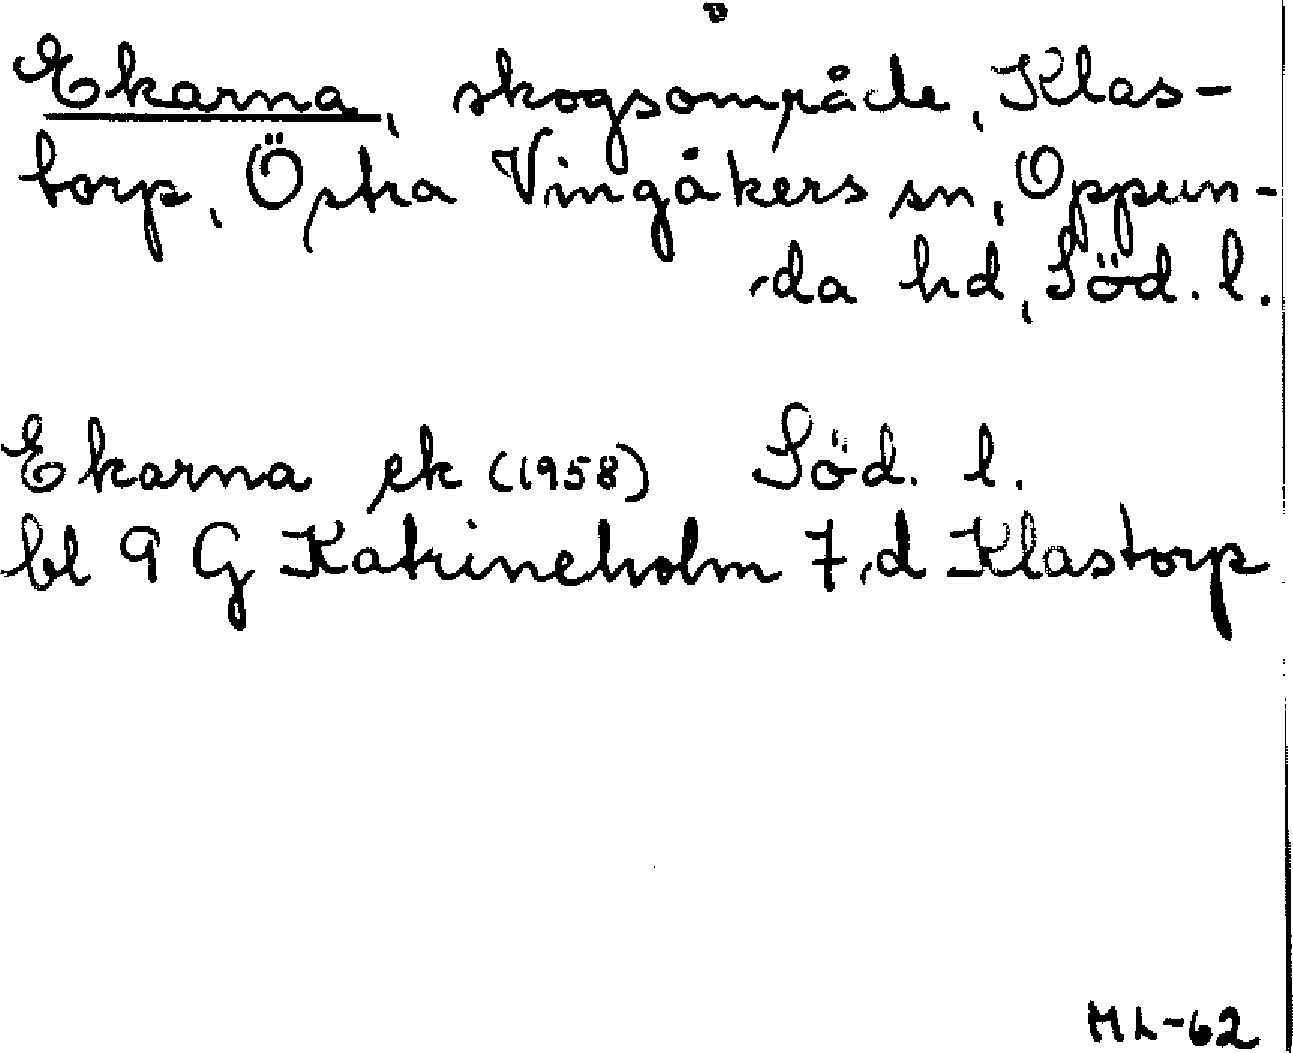 Ekarna, skogsområde, Klas-
torp, Östra Vingåkers sn, Oppun-
da hd, Söd. l.
Ekarna ek (1958) Söd. l.
bl 9 G Katrineholm 7 d Klastorp
ML-62